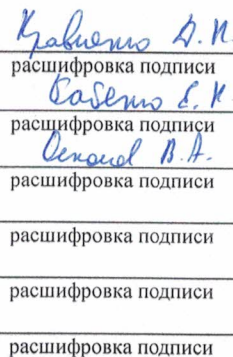 Кравченко Д. Н.
расшифровка подписи
Е. Н.
расшифровка подписи
В. А.
расшифровка подписи
расшифровка подписи
расшифровка подписи
расшифровка подписи